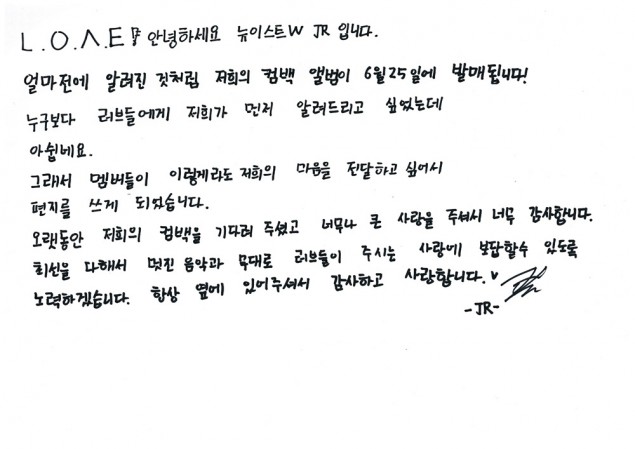 L.O.Λ.E들 안녕하세요 뉴이스트W JR 입니다.
얼마전에 알려진 것처럼 저희의 컴백 앨범이 6월25일에 발매됩니다!
누구보다 러브들에게 저희가 먼저 알려드리고 싶었는데
아쉽네요.
그래서 멤버들이 이렇게라도 저희의 마음을 전달하고 싶어서
편지를 쓰게 되었습니다.
오랫동안 저희의 컴백을 기다려 주셨고 너무나 큰 사랑을 주셔서 너무 감사합니다.
최선을 다해서 멋진 음악과 무대로 러브들이 주시는 사랑에 보답할수 있도록
노력하겠습니다. 항상 옆에 있어주셔서 감사하고 사랑합니다.♥
-JR-